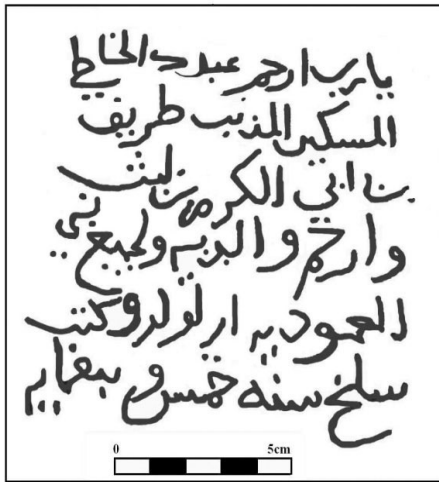 يا رب ارحم عبدك الخاطي
المسكين المذنب طريف
بن ابي الكرم بن ليث
وارحم والديه ولجميع بني
المعموديه وكتب
سلخ سنه خمس و
0 5cm